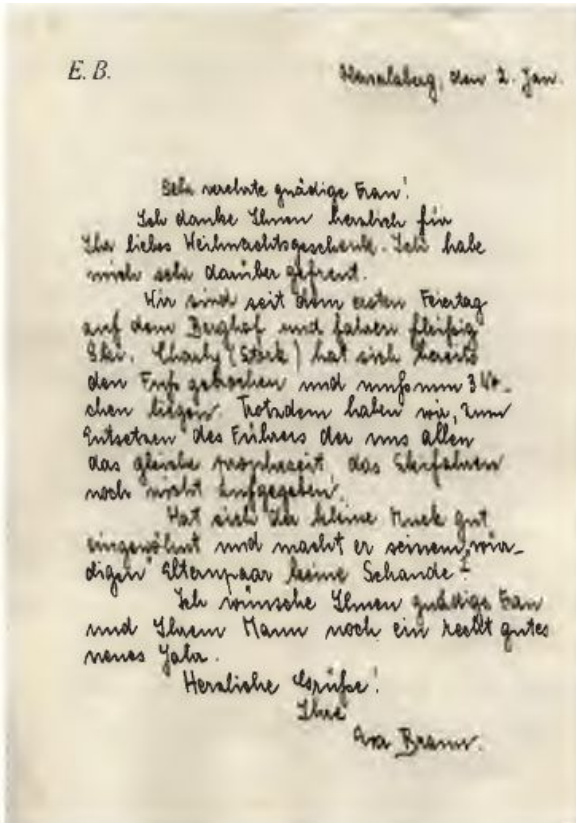 E. B.
Obersalzberg, den 2. Jan.
Sehr verehrte gnädige Frau!
Ich danke Ihnen herzlich für
Ihr liebes Weihnachtsgeschenk. Ich habe
mich sehr darüber gefreut.
Wir sind seit dem ersten Feiertag
auf dem Berghof und fahren fleißig
Ski. Charly (Stork) hat sich bereits
den Fuß gebrochen und muß nun 3 Wo-
chen liegen. Trotzdem haben wir, zum
Entsetzen des Führers der uns allen
das gleiche prophezeit, das Skifahren
noch nicht aufgegeben.
Hat sich der kleine Muck gut
eingewöhnt und macht er seinem „wür-
digen" Elternpaar keine Schande?
Ich wünsche Ihnen gnädige Frau
und Ihrem Mann noch ein recht gutes
neues Jahr.
Herzliche Grüße!
Ihre
Eva Braun.